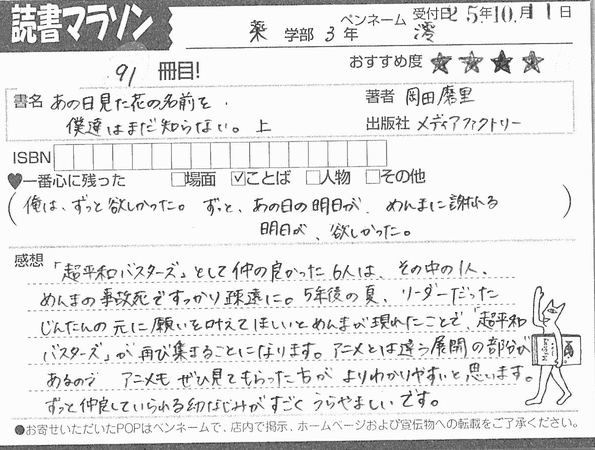 読書マラソン
薬 学部 3 年 ペンネーム 澪 受付日 25年10月11日
91 冊目! おすすめ度 ★ ★ ★ ★
書名 あの日見た花の名前を
僕達はまだ知らない。上
著者 岡田磨里
出版社 メディアファクトリー
ISBN
♥一番心に残った □場面 ☑ことば □人物 □その他
(俺は、ずっと欲しかった。ずっと、あの日の明日が、めんまに謝れる
明日が、欲しかった。)
感想
「超平和バスターズ」として仲の良かった6人は、その中の1人、
めんまの事故死ですっかり疎遠に。5年後の夏、リーダーだった
じんたんの元に願いを叶えてほしいとめんまが現れたことで、「超平和
バスターズ」が再び集まることになります。アニメとは違う展開の部分が
あるので アニメも ぜひ見てもらった方が よりわかりやすいと思います。
ずっと仲良していられる幼なじみがすごくうらやましいです。
●お寄せいただいたPOPはペンネームで、店内で掲示、ホームページおよび宣伝物への転載をご了承ください。